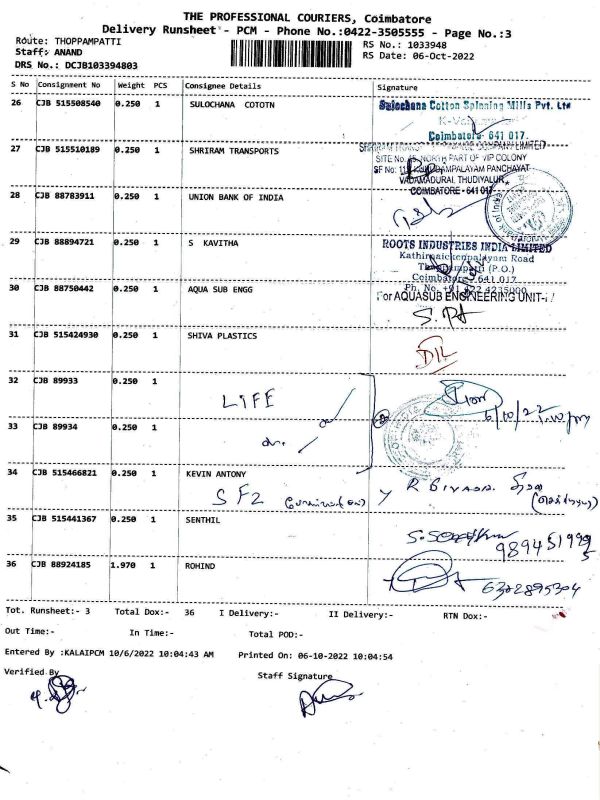 THE PROFESSIONAL COURIERS, Coimbatore
Delivery Runsheet - PCM - Phone No.:0422-3505555 - Page No.:3
Route: THOPPAMPATTI
RS No.: 1033948
Staff: ANAND
RS Date: 06-Oct-2022
DRS No.: DCJB103394803
S No Consignment No Weight PCS Consignee Details Signature
26 CJB 515508540 0.250 1 SULOCHANA COTOTN
Sulochana Cotton Spinning Mills Pvt. Ltd
Coimbatore- 641 017.
27 CJB 515510189 0.250 1 SHRIRAM TRANSPORTS
SITE No. 15, NORTH PART OF VIP COLONY
VADAMADURAI, THUDIYALUR,
COIMBATORE - 641 017
28 CJB 88783911 0.250 1 UNION BANK OF INDIA
29 CJB 88894721 0.250 1 S KAVITHA
ROOTS INDUSTRIES INDIA LIMITED
Kathirnaickenpalayam Road
Thoppampatti (P.O.)
Coimbatore - 641 017
Ph. No. +91 422 4235000
30 CJB 88750442 0.250 1 AQUA SUB ENGG
For AQUASUB ENGINEERING UNIT-I
31 CJB 515424930 0.250 1 SHIVA PLASTICS
32 CJB 89933 0.250 1
LIFE
6/10/22
33 CJB 89934 0.250 1
34 CJB 515466821 0.250 1 KEVIN ANTONY
35 CJB 515441367 0.250 1 SENTHIL
36 CJB 88924185 1.970 1 ROHIND
6302895304
Tot. Runsheet:- 3 Total Dox:- 36 I Delivery:- II Delivery:- RTN Dox:-
Out Time:- In Time:- Total POD:-
Entered By :KALAIPCM 10/6/2022 10:04:43 AM Printed On: 06-10-2022 10:04:54
Verified By Staff Signature